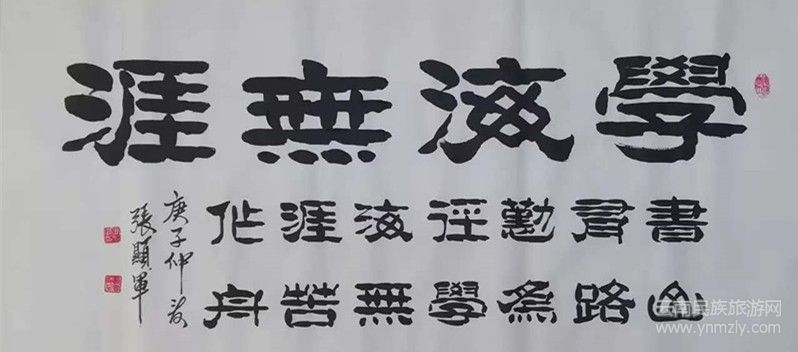 學海無涯
書山
有路
勤為
徑學
海無
涯苦
作舟
庚子仲夏
張顯軍
云南民族旅游网
www.ynmzly.com